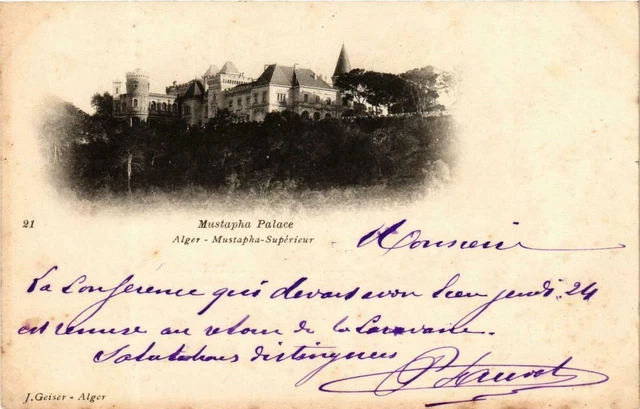 21
Mustapha Palace
Alger - Mustapha-Supérieur
Monsieur
La Conference qui devait avoir lieu jeudi 24
est remise au retour de la Caravane.
Salutations distinguees
J. Geiser - Alger